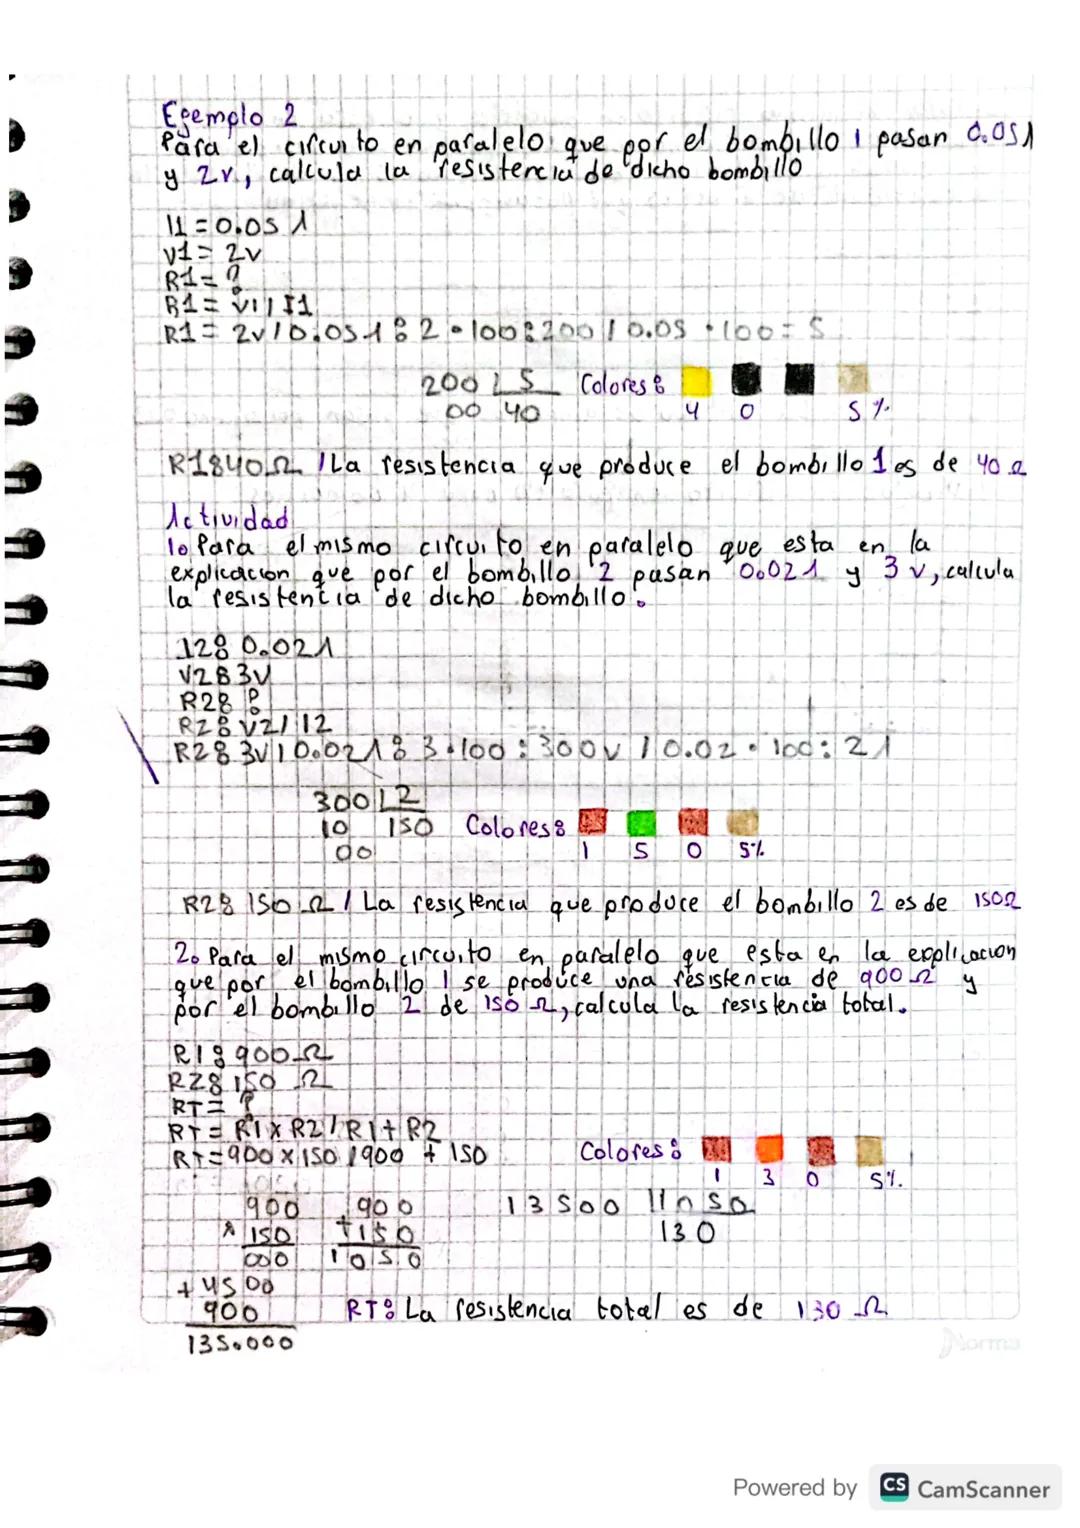 Egemplo 2
Para el circuito en paralelo que por el bombillo 1 pasan 0.05A
y 2v, calcula la resistencia de dicho bombillo
I1 = 0.05 A
V1 = 2v
R1 = ?
R1 = V1 / I1
R1 = 2v / 0.05 A : 2 · 100 : 200 / 0.05 · 100 = 5
200 5 Colores:
00 40 4 0 5 %
R1: 40 Ω / La resistencia que produce el bombillo 1 es de 40 Ω
Actividad
1. Para el mismo circuito en paralelo que esta en la
explicacion que por el bombillo 2 pasan 0.02A y 3 v, calcula
la resistencia de dicho bombillo.
I2: 0.02A
V2: 3V
R2: ?
R2: V2 / I2
R2: 3V / 0.02A : 3 · 100 : 300v / 0.02 · 100 : 2A
300 2
10 150 Colores:
00 1 5 0 5%
R2: 150 Ω / La resistencia que produce el bombillo 2 es de 150Ω
2. Para el mismo circuito en paralelo que esta en la explicacion
que por el bombillo 1 se produce una resistencia de 900 Ω y
por el bombillo 2 de 150 Ω, calcula la resistencia total.
R1: 900 Ω
R2: 150 Ω
RT = ?
RT = R1 x R2 / R1 + R2
RT = 900 x 150 / 900 + 150 Colores:
1 3 0 5%
900 900 13500 1050
x 150 +150 130
000 1050
+ 4500
900 RT: La resistencia total es de 130 Ω
135.000
Norma
Powered by CS CamScanner